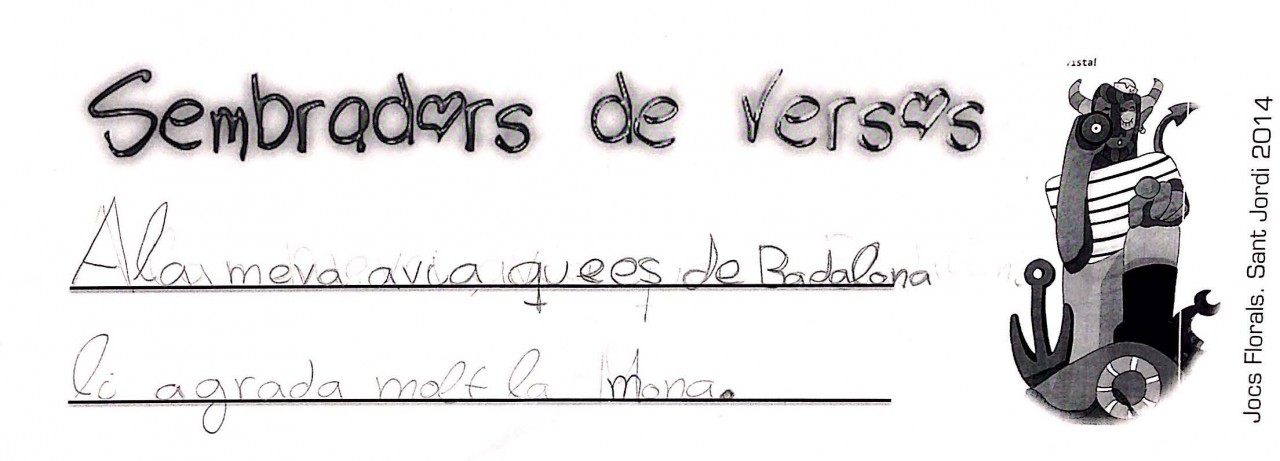 Sembradors de versos
A la meva avia, que es de Badalona
li agrada molt la Mona.
Jocs Florals. Sant Jordi 2014